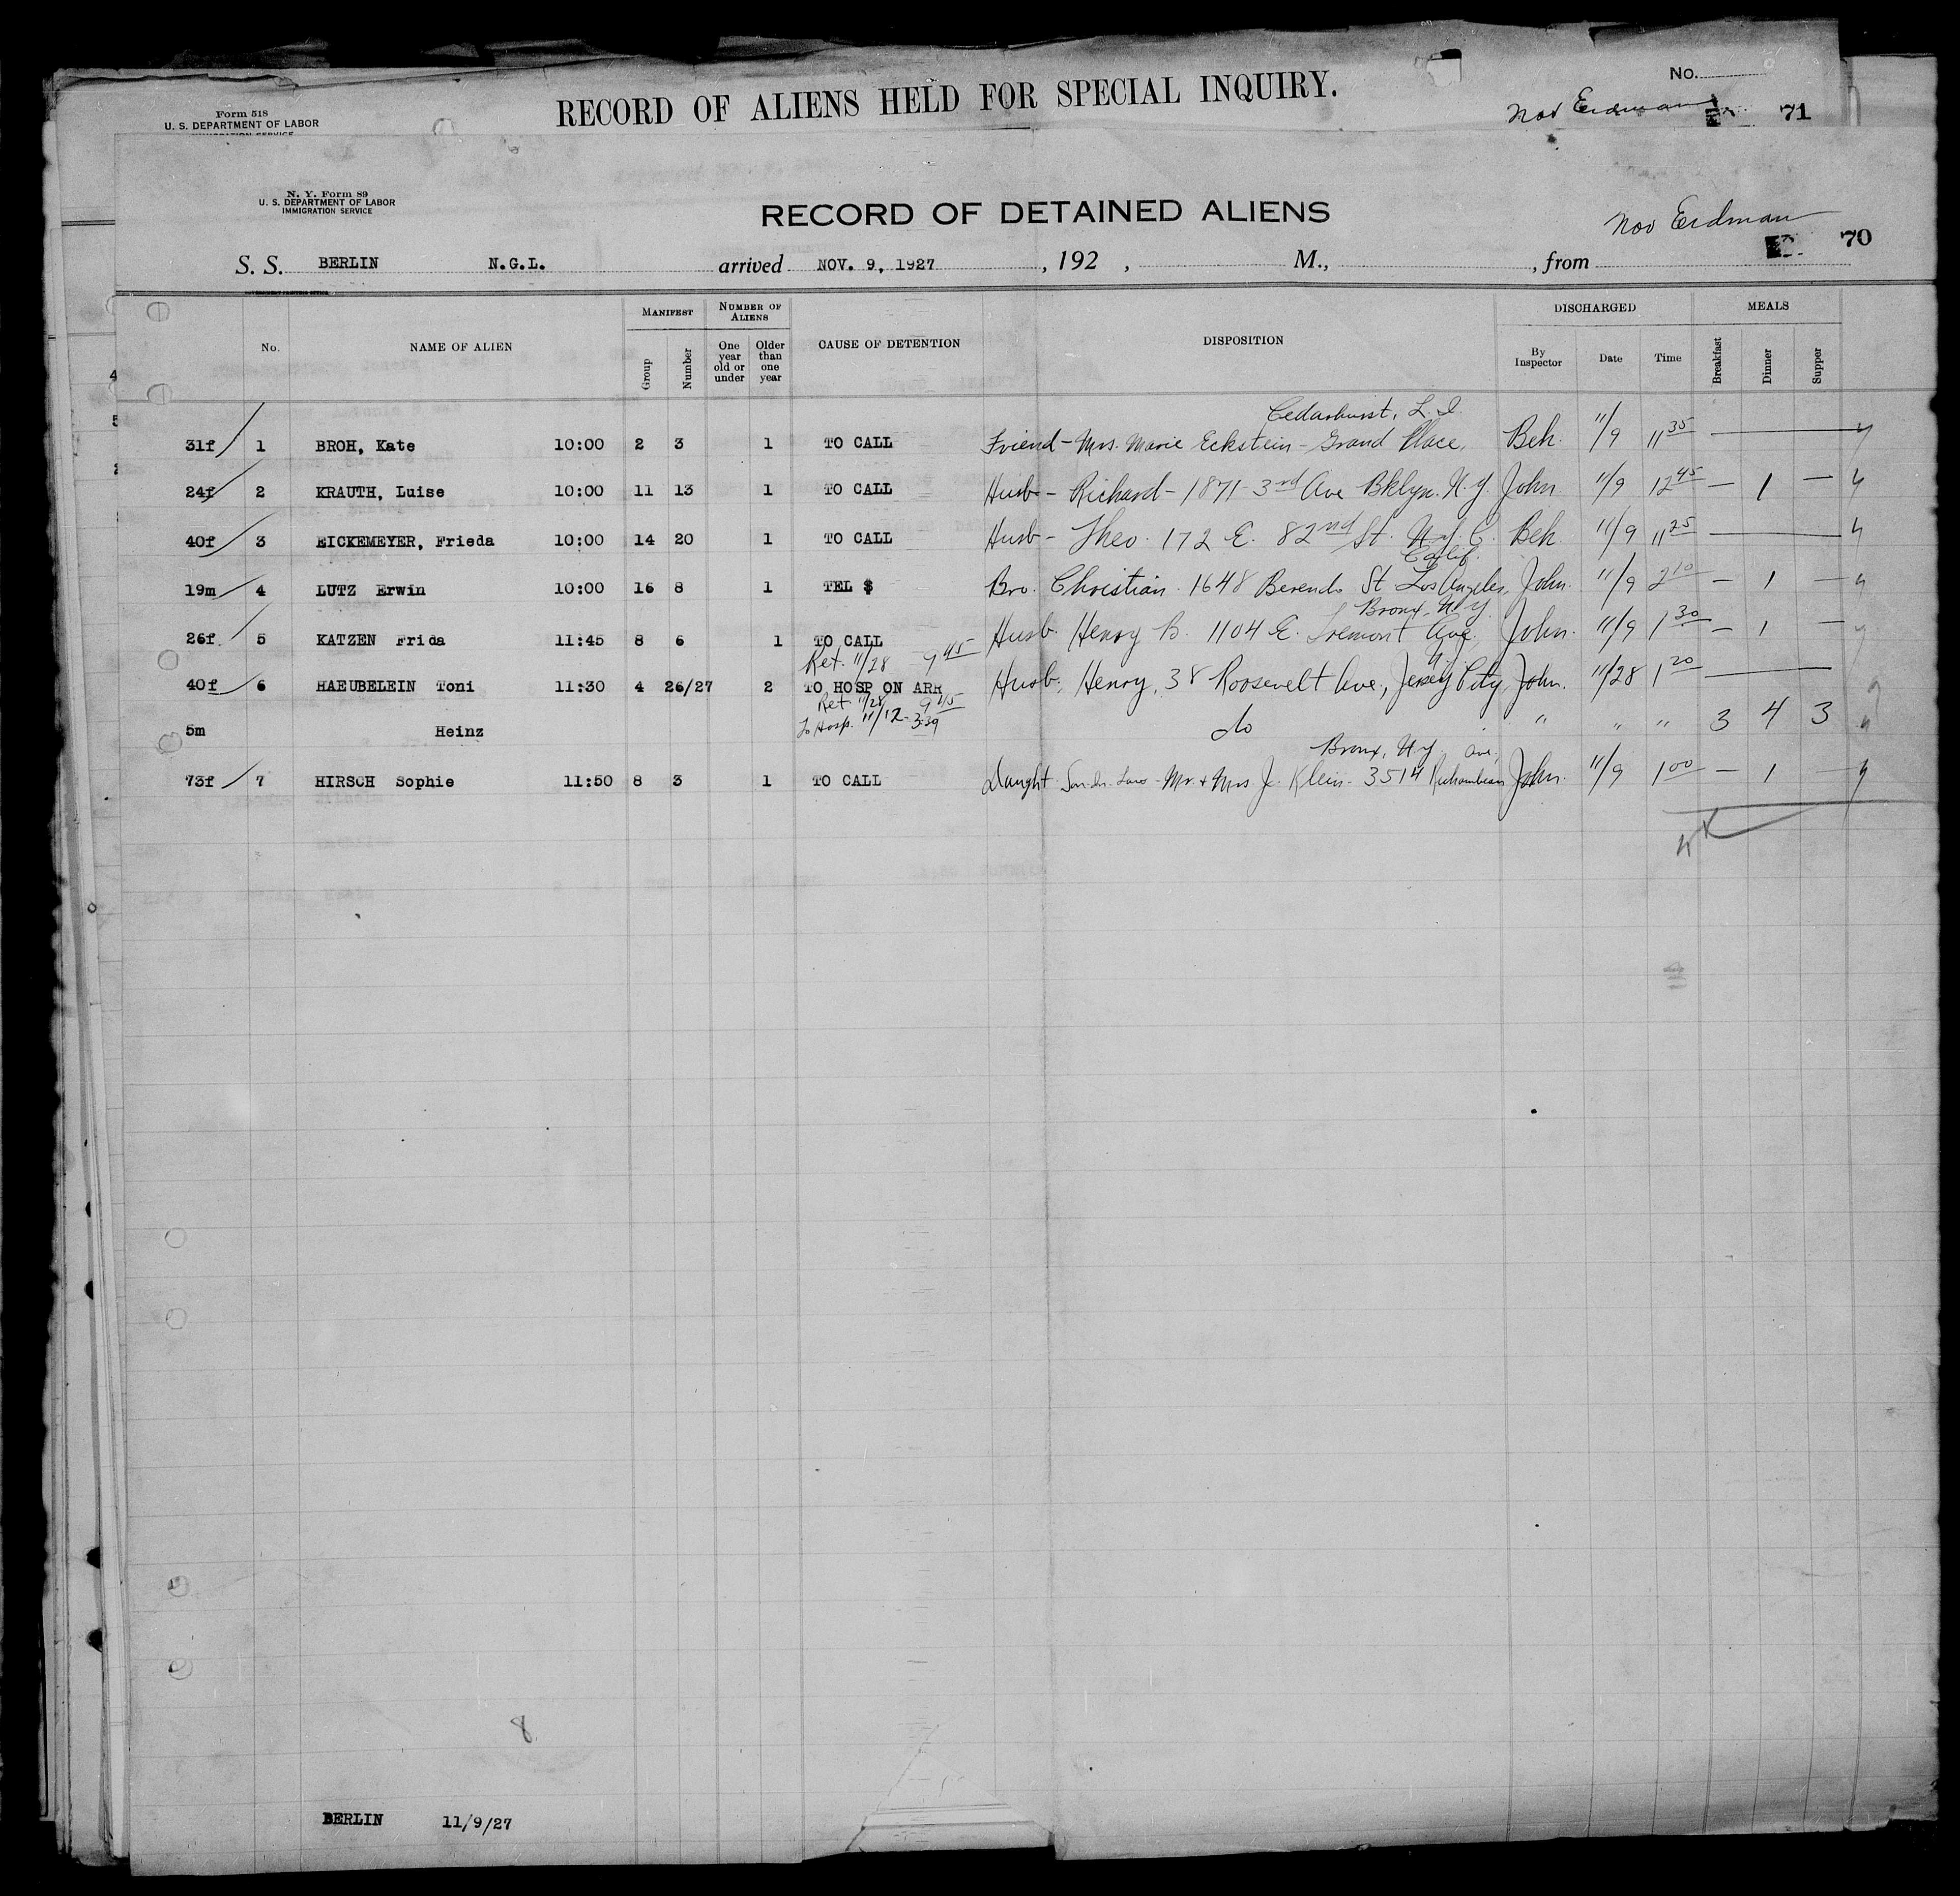 RECORD OF ALIENS HELD FOR SPECIAL INQUIRY.
No.
Form 518
U. S. DEPARTMENT OF LABOR
IMMIGRATION SERVICE
Nov Erdman 71
N. Y. Form 89
U. S. DEPARTMENT OF LABOR
IMMIGRATION SERVICE
RECORD OF DETAINED ALIENS
Nov Erdman
70
S. S. BERLIN N.G.L. arrived NOV. 9, 1927, 192 , M., , from
No. NAME OF ALIEN MANIFEST Group Number NUMBER OF ALIENS One year old or under Older than one year CAUSE OF DETENTION DISPOSITION DISCHARGED By Inspector Date Time MEALS Breakfast Dinner Supper
Cedarhurst, L. I.
31f 1 BROH, Kate 10:00 2 3 1 TO CALL Friend - Mrs. Marie Eckstein - Grand Place, Beh. 11/9 11 35
24f 2 KRAUTH, Luise 10:00 11 13 1 TO CALL Husb - Richard - 1871 - 3rd Ave Bklyn. N.Y. John 11/9 12 45 — 1 —
40f 3 EICKEMEYER, Frieda 10:00 14 20 1 TO CALL Husb - Theo. 172 E. 82nd St. N.Y.C. Beh 11/9 11 25
Calif.
19m 4 LUTZ Erwin 10:00 16 8 1 TEL $ Bro. Christian. 1648 Berendo St Los Angeles, John. 11/9 2 10 — 1 —
Bronx, N.Y.
26f 5 KATZEN Frida 11:45 8 6 1 TO CALL Husb. Henry B. 1104 E. Tremont Ave, John. 11/9 1 30 — 1 —
Ret. 11/28 9 45
40f 6 HAEUBELEIN Toni 11:30 4 26/27 2 TO HOSP ON ARR Husb. Henry, 38 Roosevelt Ave., Jersey City, John. 11/28 1 20
Ret 11/28 9 45
To Hosp. 11/12 - 3:39
5m Heinz do " " " 3 4 3
Bronx, N.Y. Ave,
73f 7 HIRSCH Sophie 11:50 8 3 1 TO CALL Daught Son-in-Law - Mr. & Mrs J. Klein - 3514 Rochambeau John. 11/9 1 00 — 1 —
8
BERLIN 11/9/27